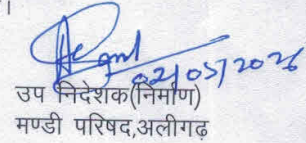 ।
02/05/2026
उप निदेशक(निर्माण)
मण्डी परिषद,अलीगढ़